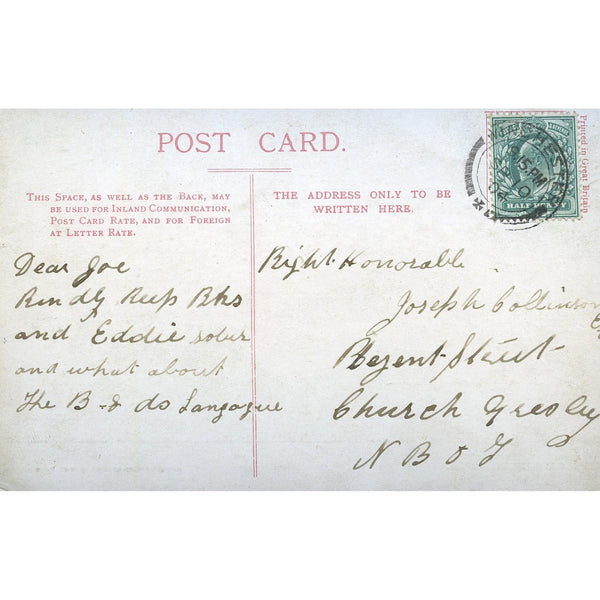 POST CARD.
THIS SPACE, AS WELL AS THE BACK, MAY
BE USED FOR INLAND COMMUNICATION,
POST CARD RATE, AND FOR FOREIGN
AT LETTER RATE.
THE ADDRESS ONLY TO BE
WRITTEN HERE.
Printed in Great Britain
HALF PENNY
15 PM
Dear Joe
Kindly Keep Bks
and Eddie sober
and what about
The B-d do Langague
Right Honorable
Joseph Collinson
Regent Street
Church Gresley
N B &